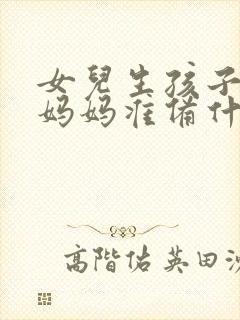 女兒生孩子
妈妈准備什
高階佑英田